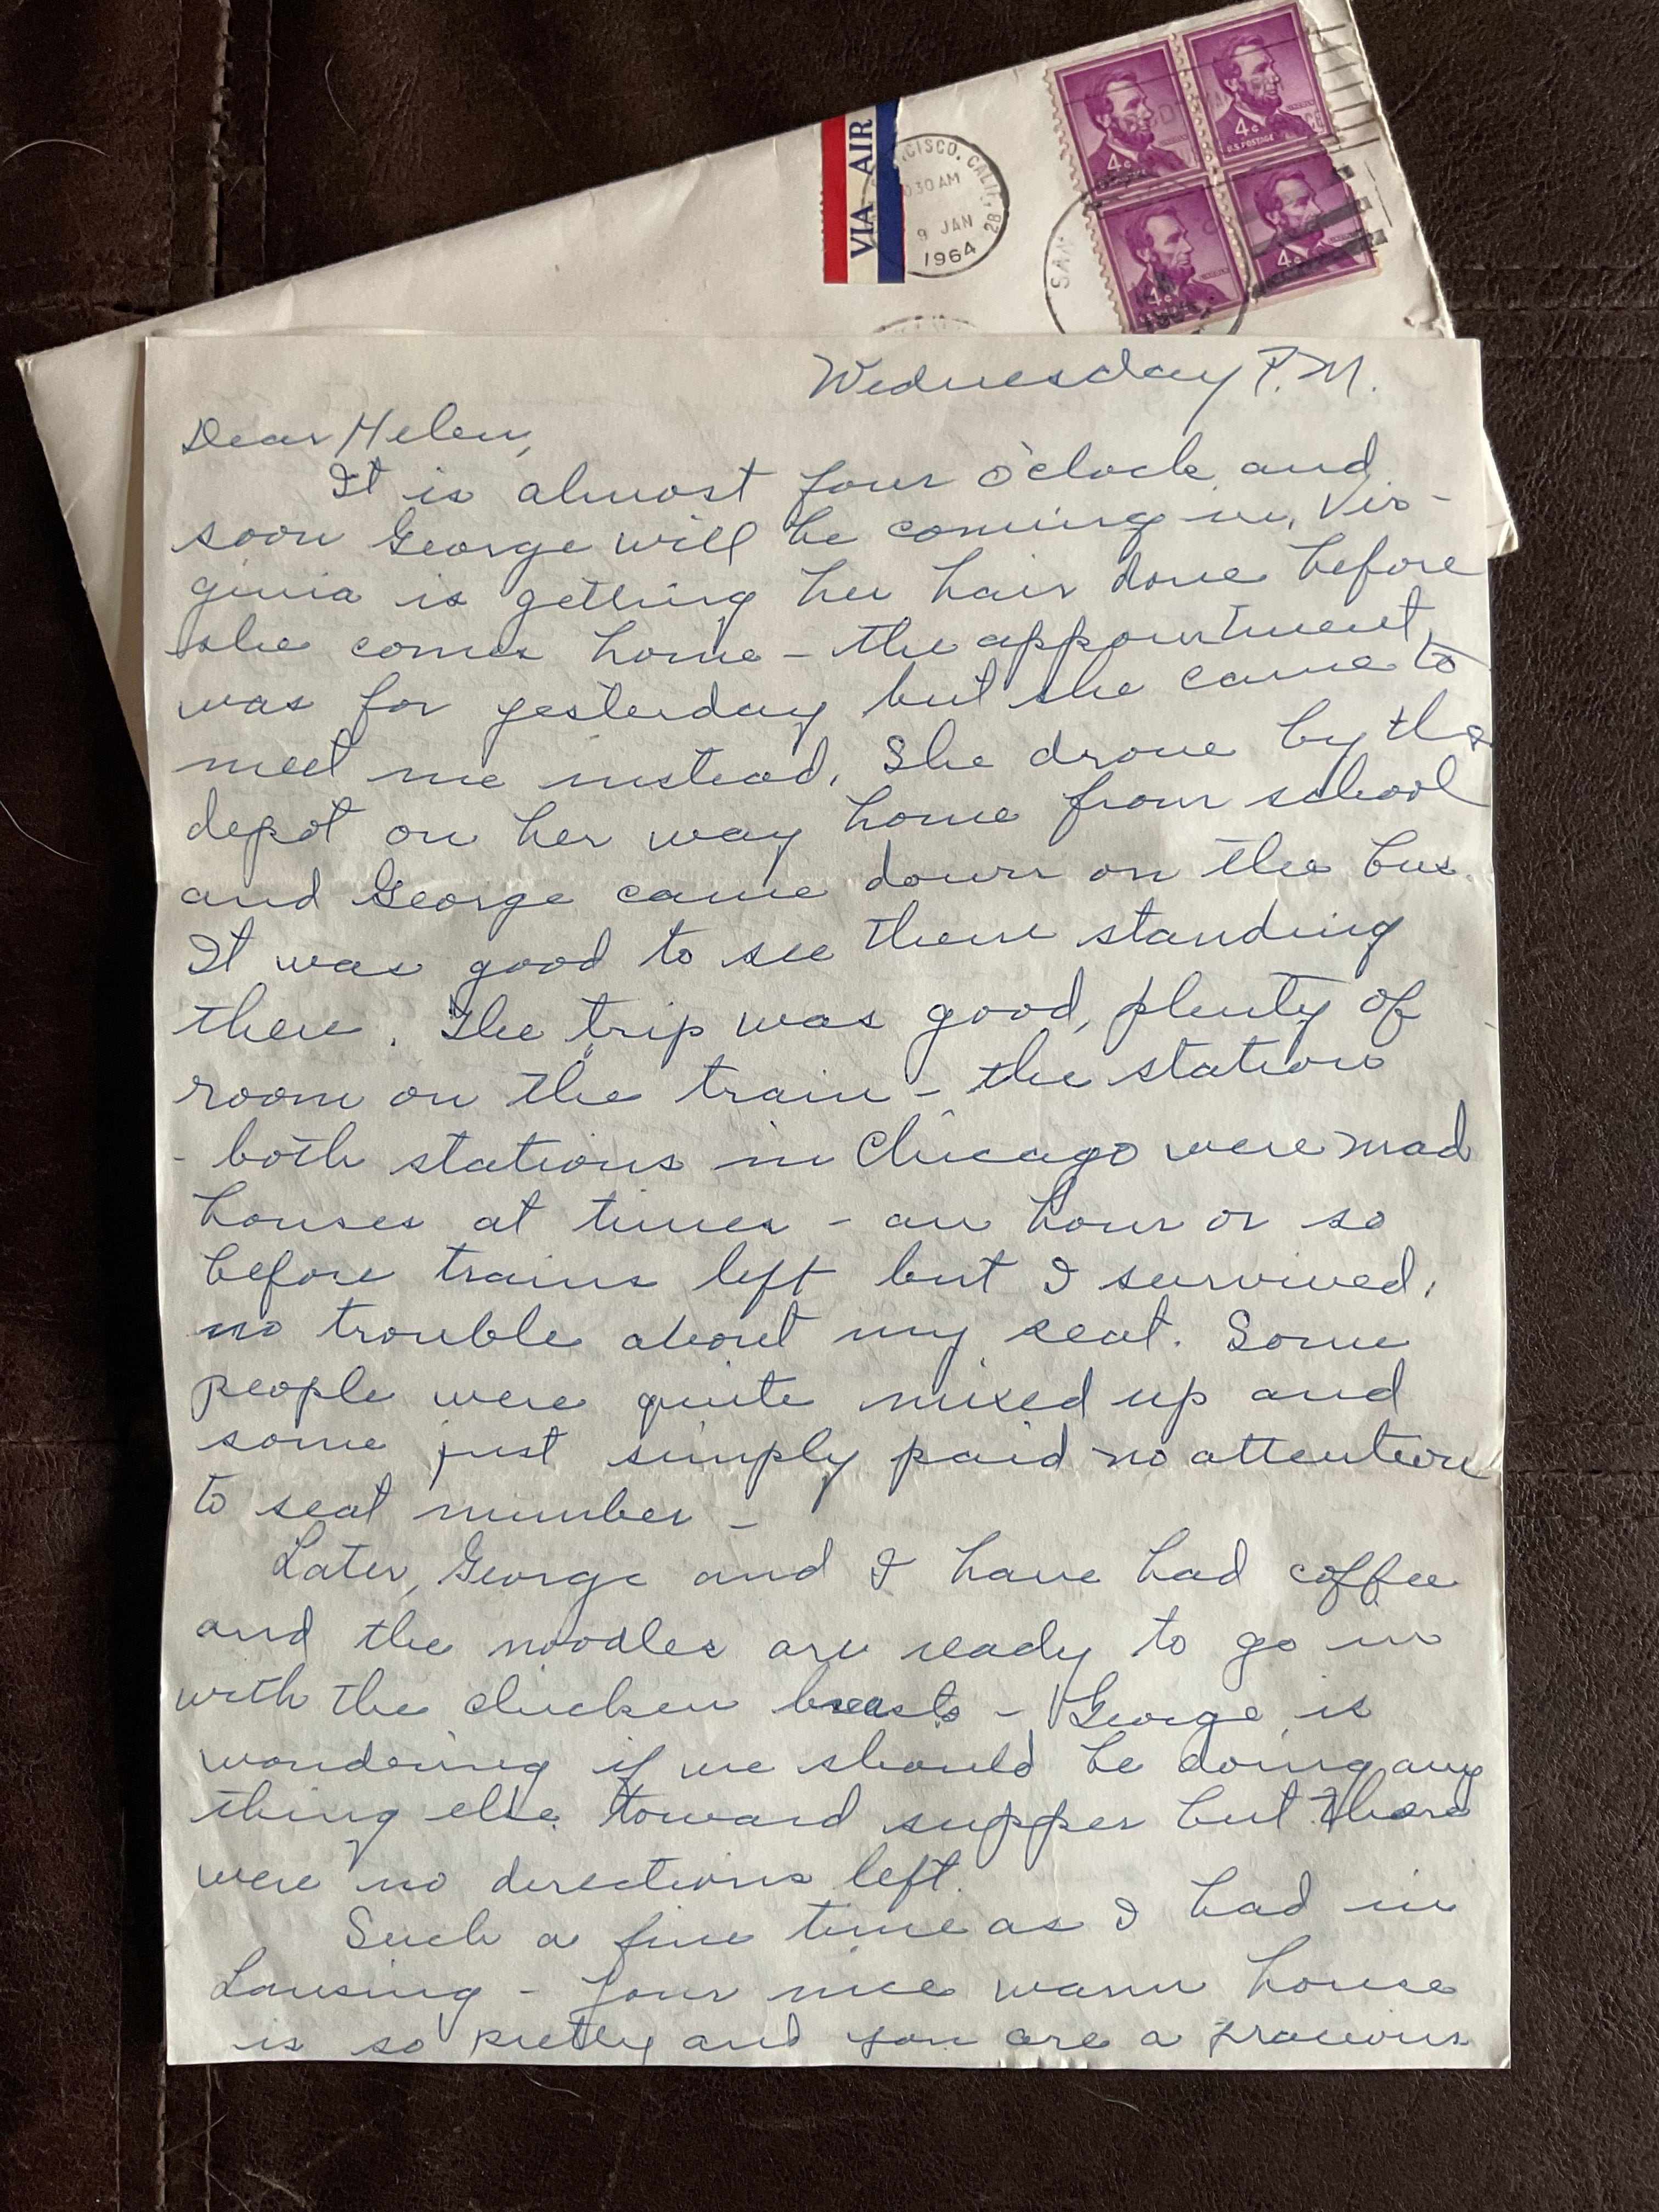 VIA AIR
CISCO, CALIF.
30 AM
9 JAN
1964
28
SAN
4¢
4¢
U.S. POSTAGE
4¢
4¢
Wednesday P.M.
Dear Helen,
It is almost four o'clock and
soon George will be coming in. Vir-
ginia is getting her hair done before
she comes home - the appointment
was for yesterday but she came to
meet me instead. She drove by the
depot on her way home from school
and George came down on the bus.
It was good to see them standing
there. The trip was good, plenty of
room on the train - the station
- both stations in Chicago were mad
houses at times - an hour or so
before trains left but I survived,
no trouble about my seat. Some
people were quite mixed up and
some just simply paid no attention
to seat number -
Later, George and I have had coffee
and the noodles are ready to go in
with the chicken breasts - George is
wondering if we should be doing any
thing else toward supper but there
were no directions left.
Such a fine time as I had in
Lansing - Your nice warm house
is so pretty and you are a gracious